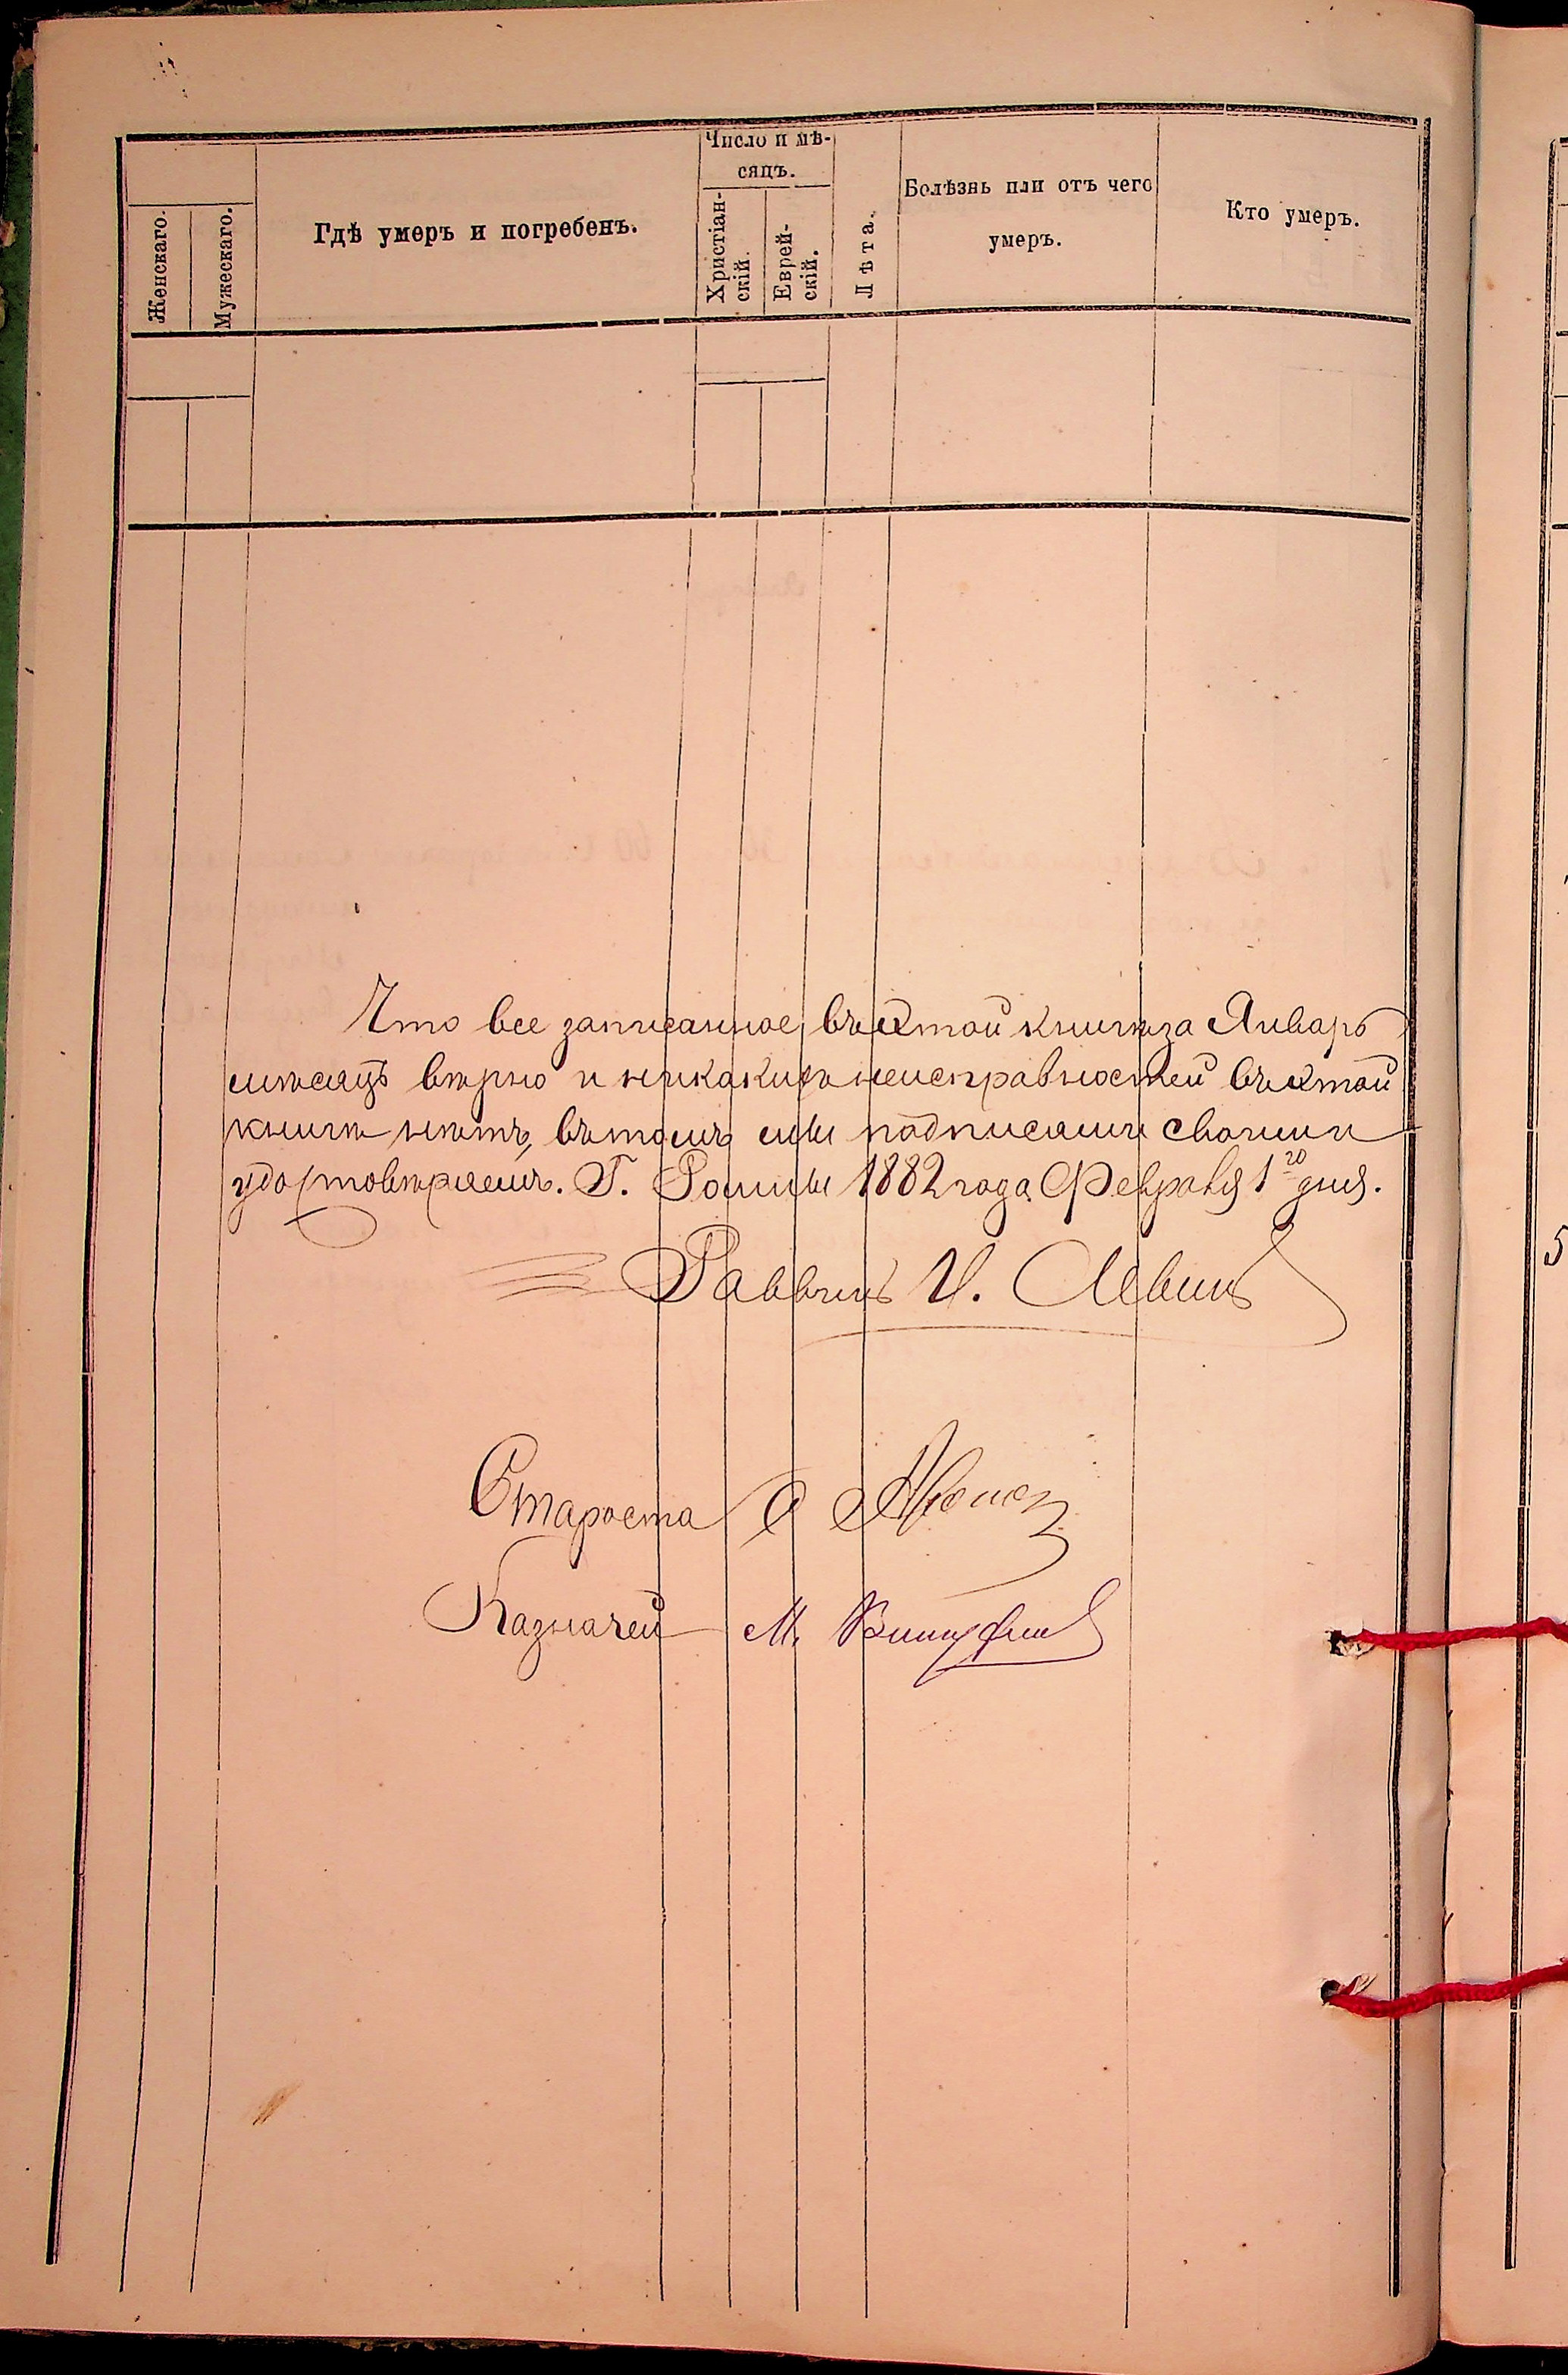 Женскаго.
Мужескаго.
Гдѣ умеръ и погребенъ.
Число и мѣ-
сяцъ.
Христіан-
скій.
Еврей-
скій.
Лѣта.
Болѣзнь или отъ чего
умеръ.
Кто умеръ.
Что все записанное въ этой книгѣ за Январь
мѣсяцъ вѣрно и никакихъ неисправностей въ этой
книгѣ нѣтъ, въ томъ мы подписами своими
удостовѣряемъ. Г. Ромны 1882 года Февраля 1го дня.
Раввинъ И. Левинъ
Староста
Казначей М.
5